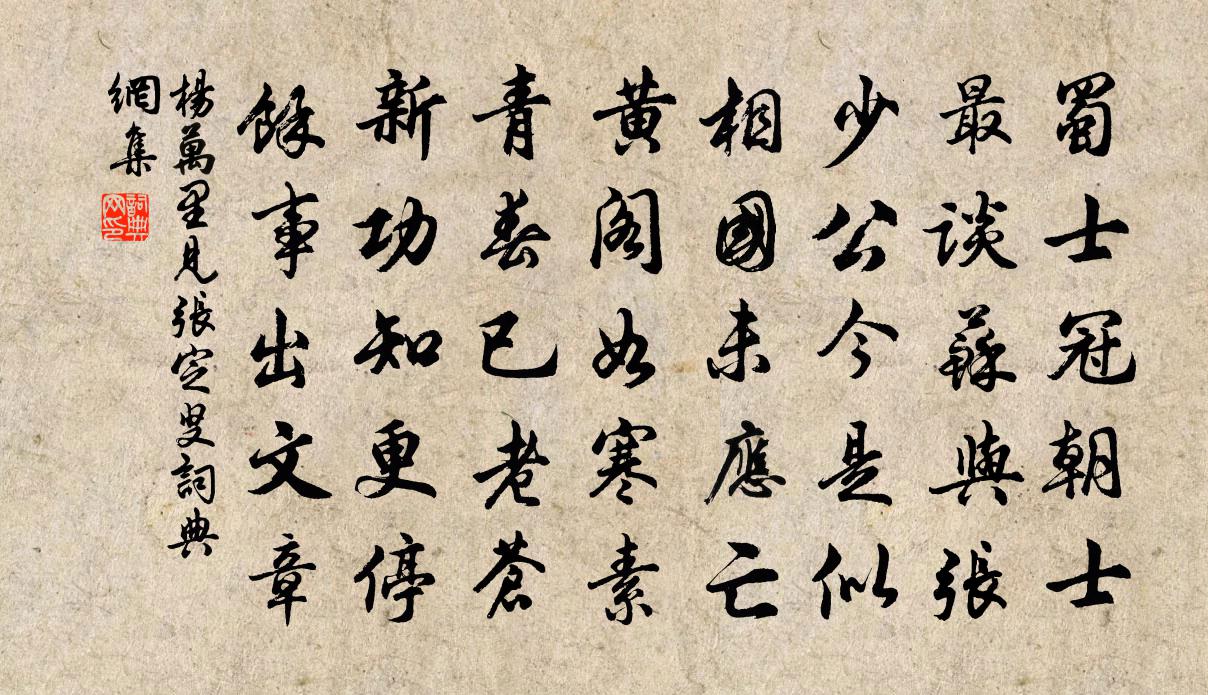 蜀士冠朝士
最談蘇與張
少公今是似
相國未應亡
黃閣如寒素
青春已老蒼
新功知更停
餘事出文章
楊萬里見張定叟詞典
網集
詞典網印